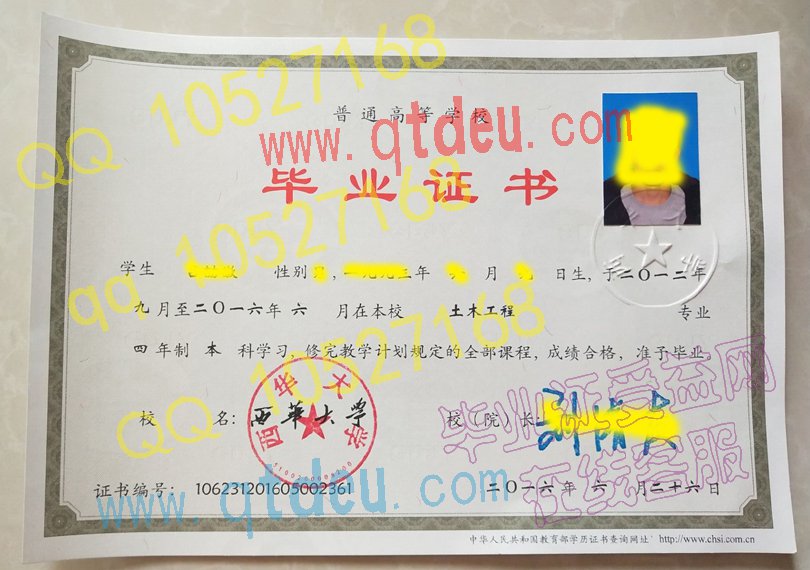 普通高等学校
www.qtdeu.com
毕业证书
QQ 10527168
学生 性别 ，一九九三年 月 日生，于二〇一二年
九月至二〇一六年六月在本校 土木工程 专业
qq 10527168
四年制 本 科学习，修完教学计划规定的全部课程，成绩合格，准予毕业
QQ 10527168
校 名：西华大学 校（院）长：
西华大学
毕业证受益网
在线客服
证书编号：106231201605002361 二〇一六年六月二十六日
www.qtdeu.com
中华人民共和国教育部学历证书查询网址：http://www.chsi.com.cn